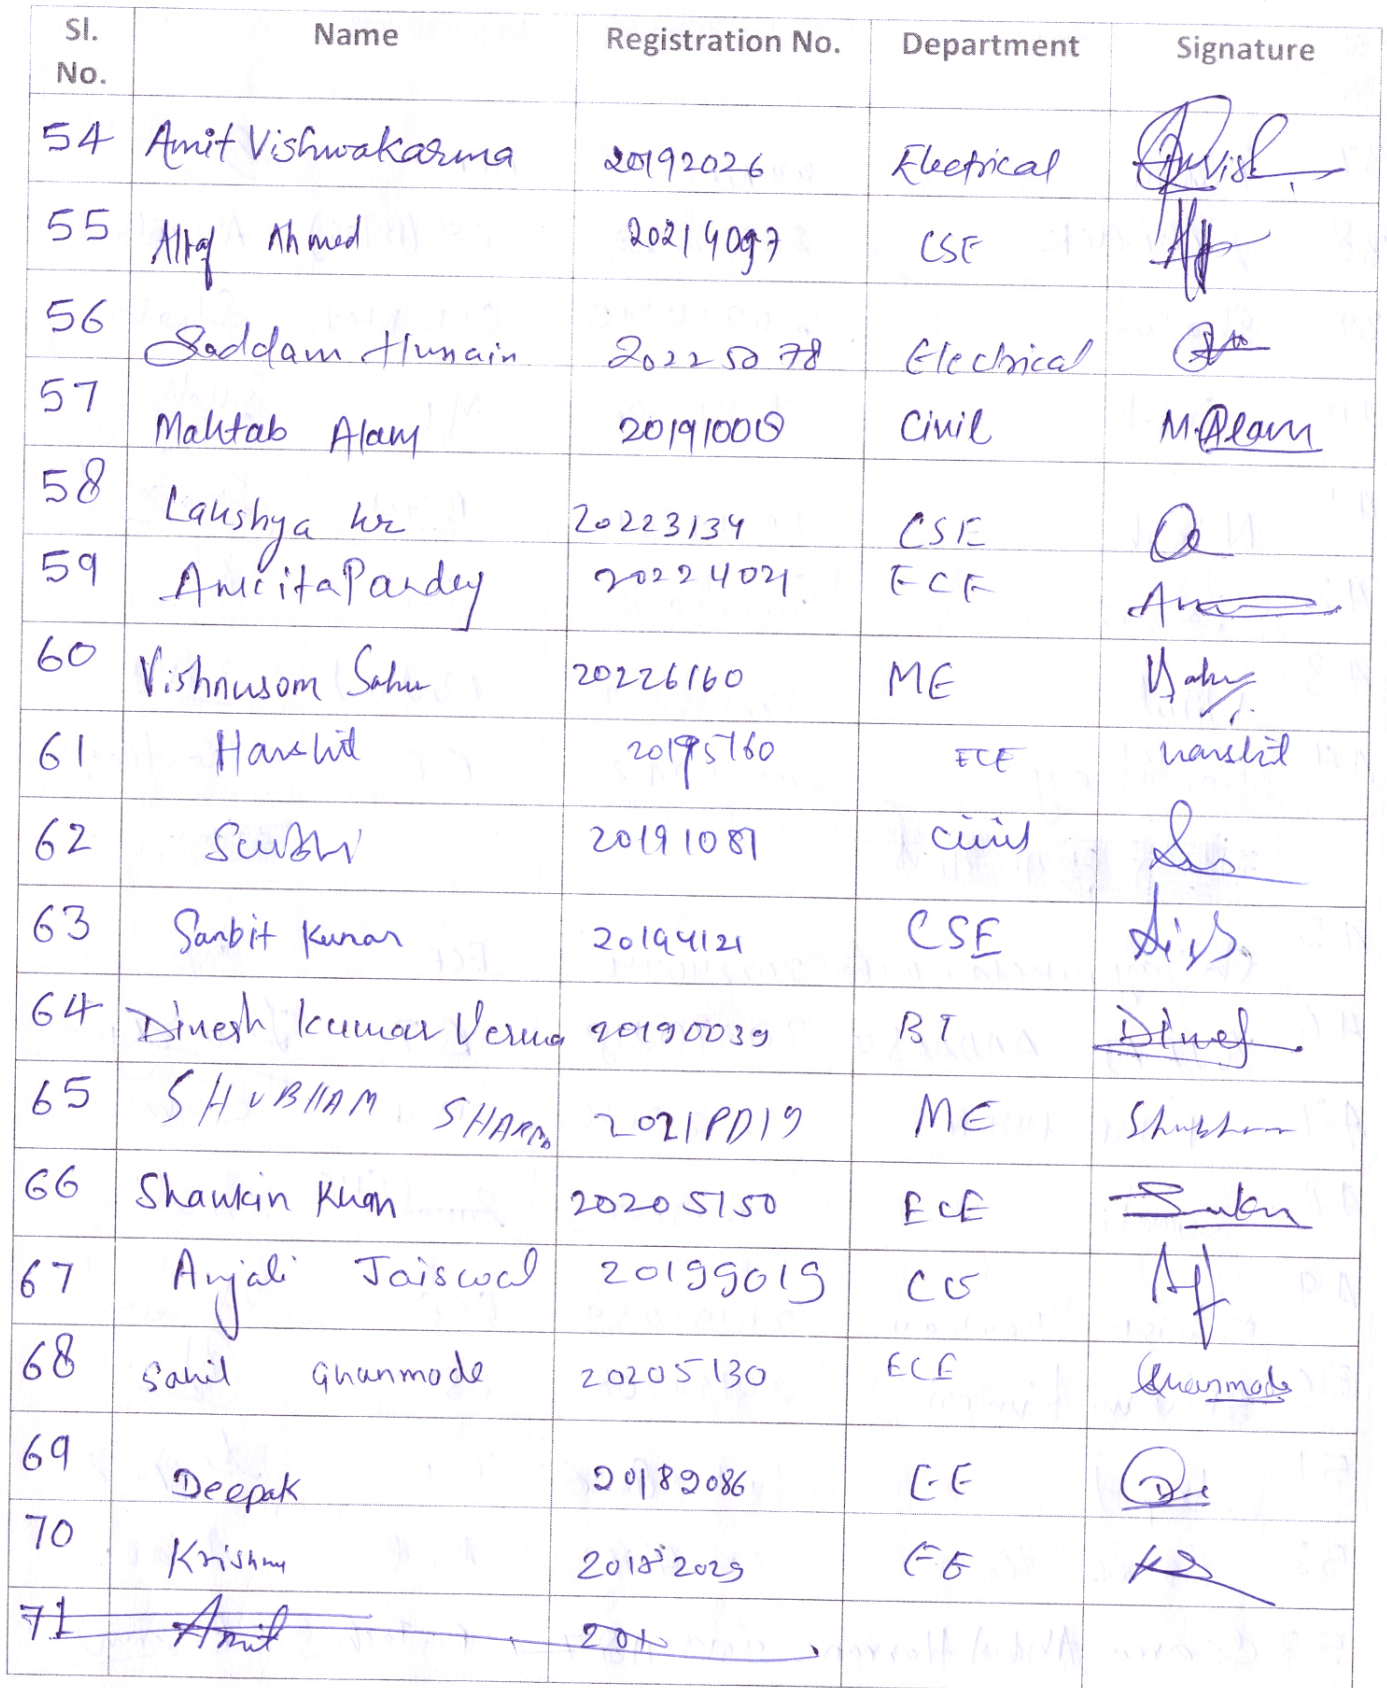 Sl. No. Name Registration No. Department Signature
54 Amit Vishwakarma 20192026 Electrical
55 Altaf Ahmed 20214097 CSE
56 Saddam Husain 20225078 Electrical
57 Mahtab Alam 20191008 Civil M.Alam
58 Lakshya kr 20223134 CSE
59 Amrita Pandey 20224021 ECE
60 Vishnusom Sahu 20226160 ME Sahu
61 Harshit 20195160 ECE Harshit
62 20191081 civil
63 Sanbit Kumar 20194121 CSE
64 Dinesh kumar Verma 20190039 BT Dinesh
65 SHUBHAM SHARMA 2021PD19 ME Shubham
66 Shaukin Khan 20205150 ECE
67 Anjali Jaiswal 20199019
68 Sahil Ghanmode 20205130 ECE Ghanmode
69 Deepak 20182086 EE
70 Krishna 20182029 EE
71 Amit 201